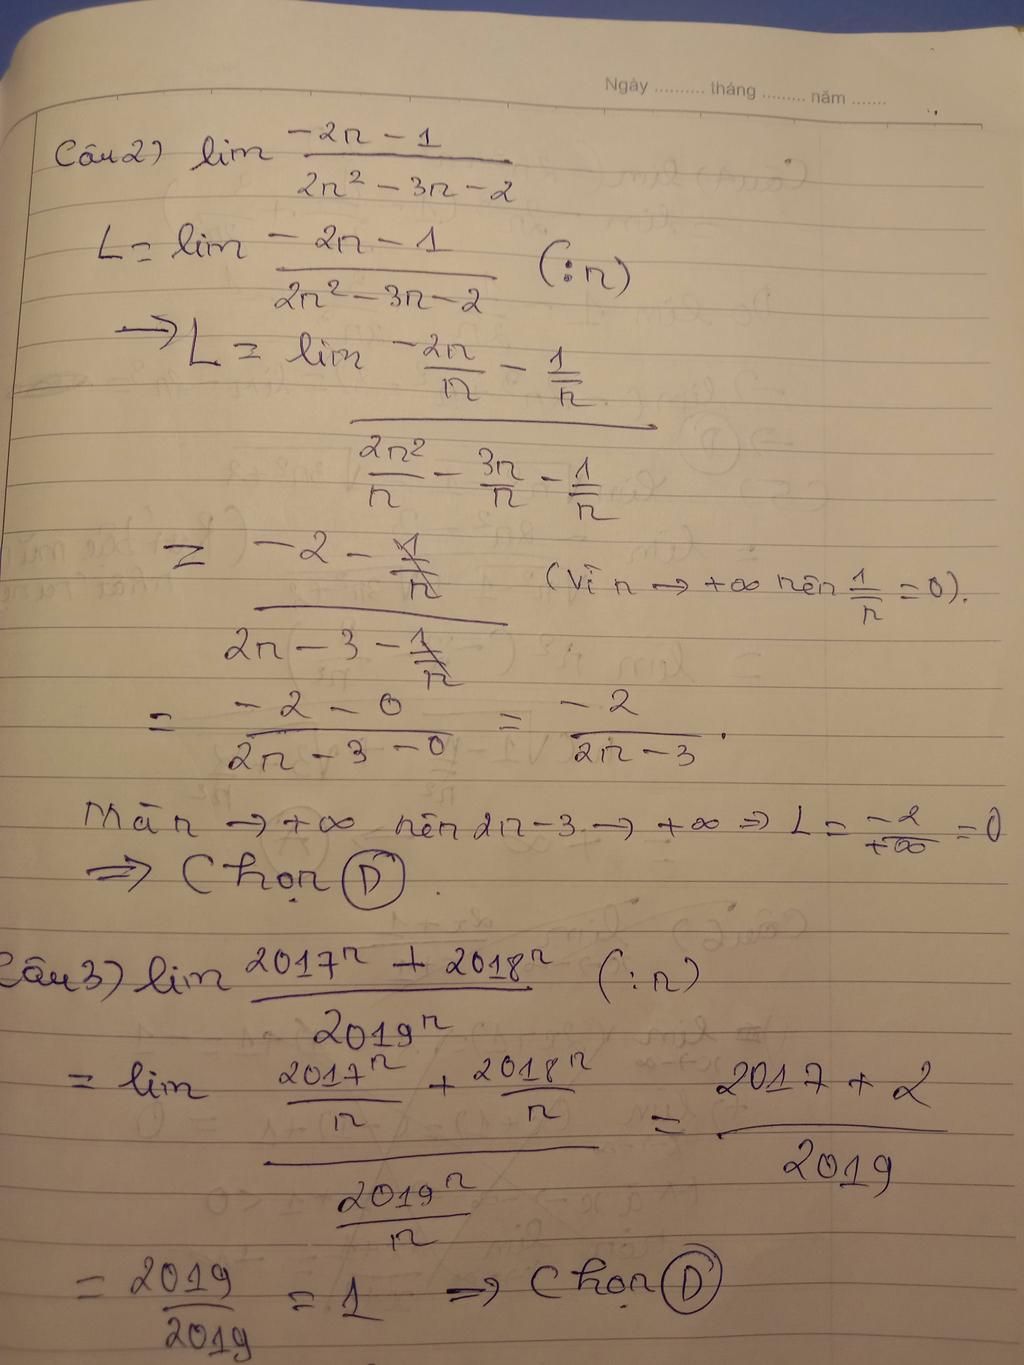 Ngày .......... tháng ......... năm .......
Câu 2) lim (-2n - 1)/(2n² - 3n - 2)
L = lim (-2n - 1)/(2n² - 3n - 2) (:n)
→ L = lim (-2n/n - 1/n)/(2n²/n - 3n/n - 1/n)
= (-2 - 1/n)/(2n - 3 - 1/n) (Vì n → +∞ nên 1/n = 0).
= (-2 - 0)/(2n - 3 - 0) = -2/(2n - 3).
Mà n → +∞ nên 2n - 3 → +∞ ⇒ L = -2/+∞ = 0
⇒ Chọn D.
Câu 3) lim (2017ⁿ + 2018ⁿ)/2019ⁿ (:n)
= lim (2017ⁿ/n + 2018ⁿ/n)/(2019ⁿ/n) = (2017 + 2)/2019
= 2019/2019 = 1 ⇒ Chọn D